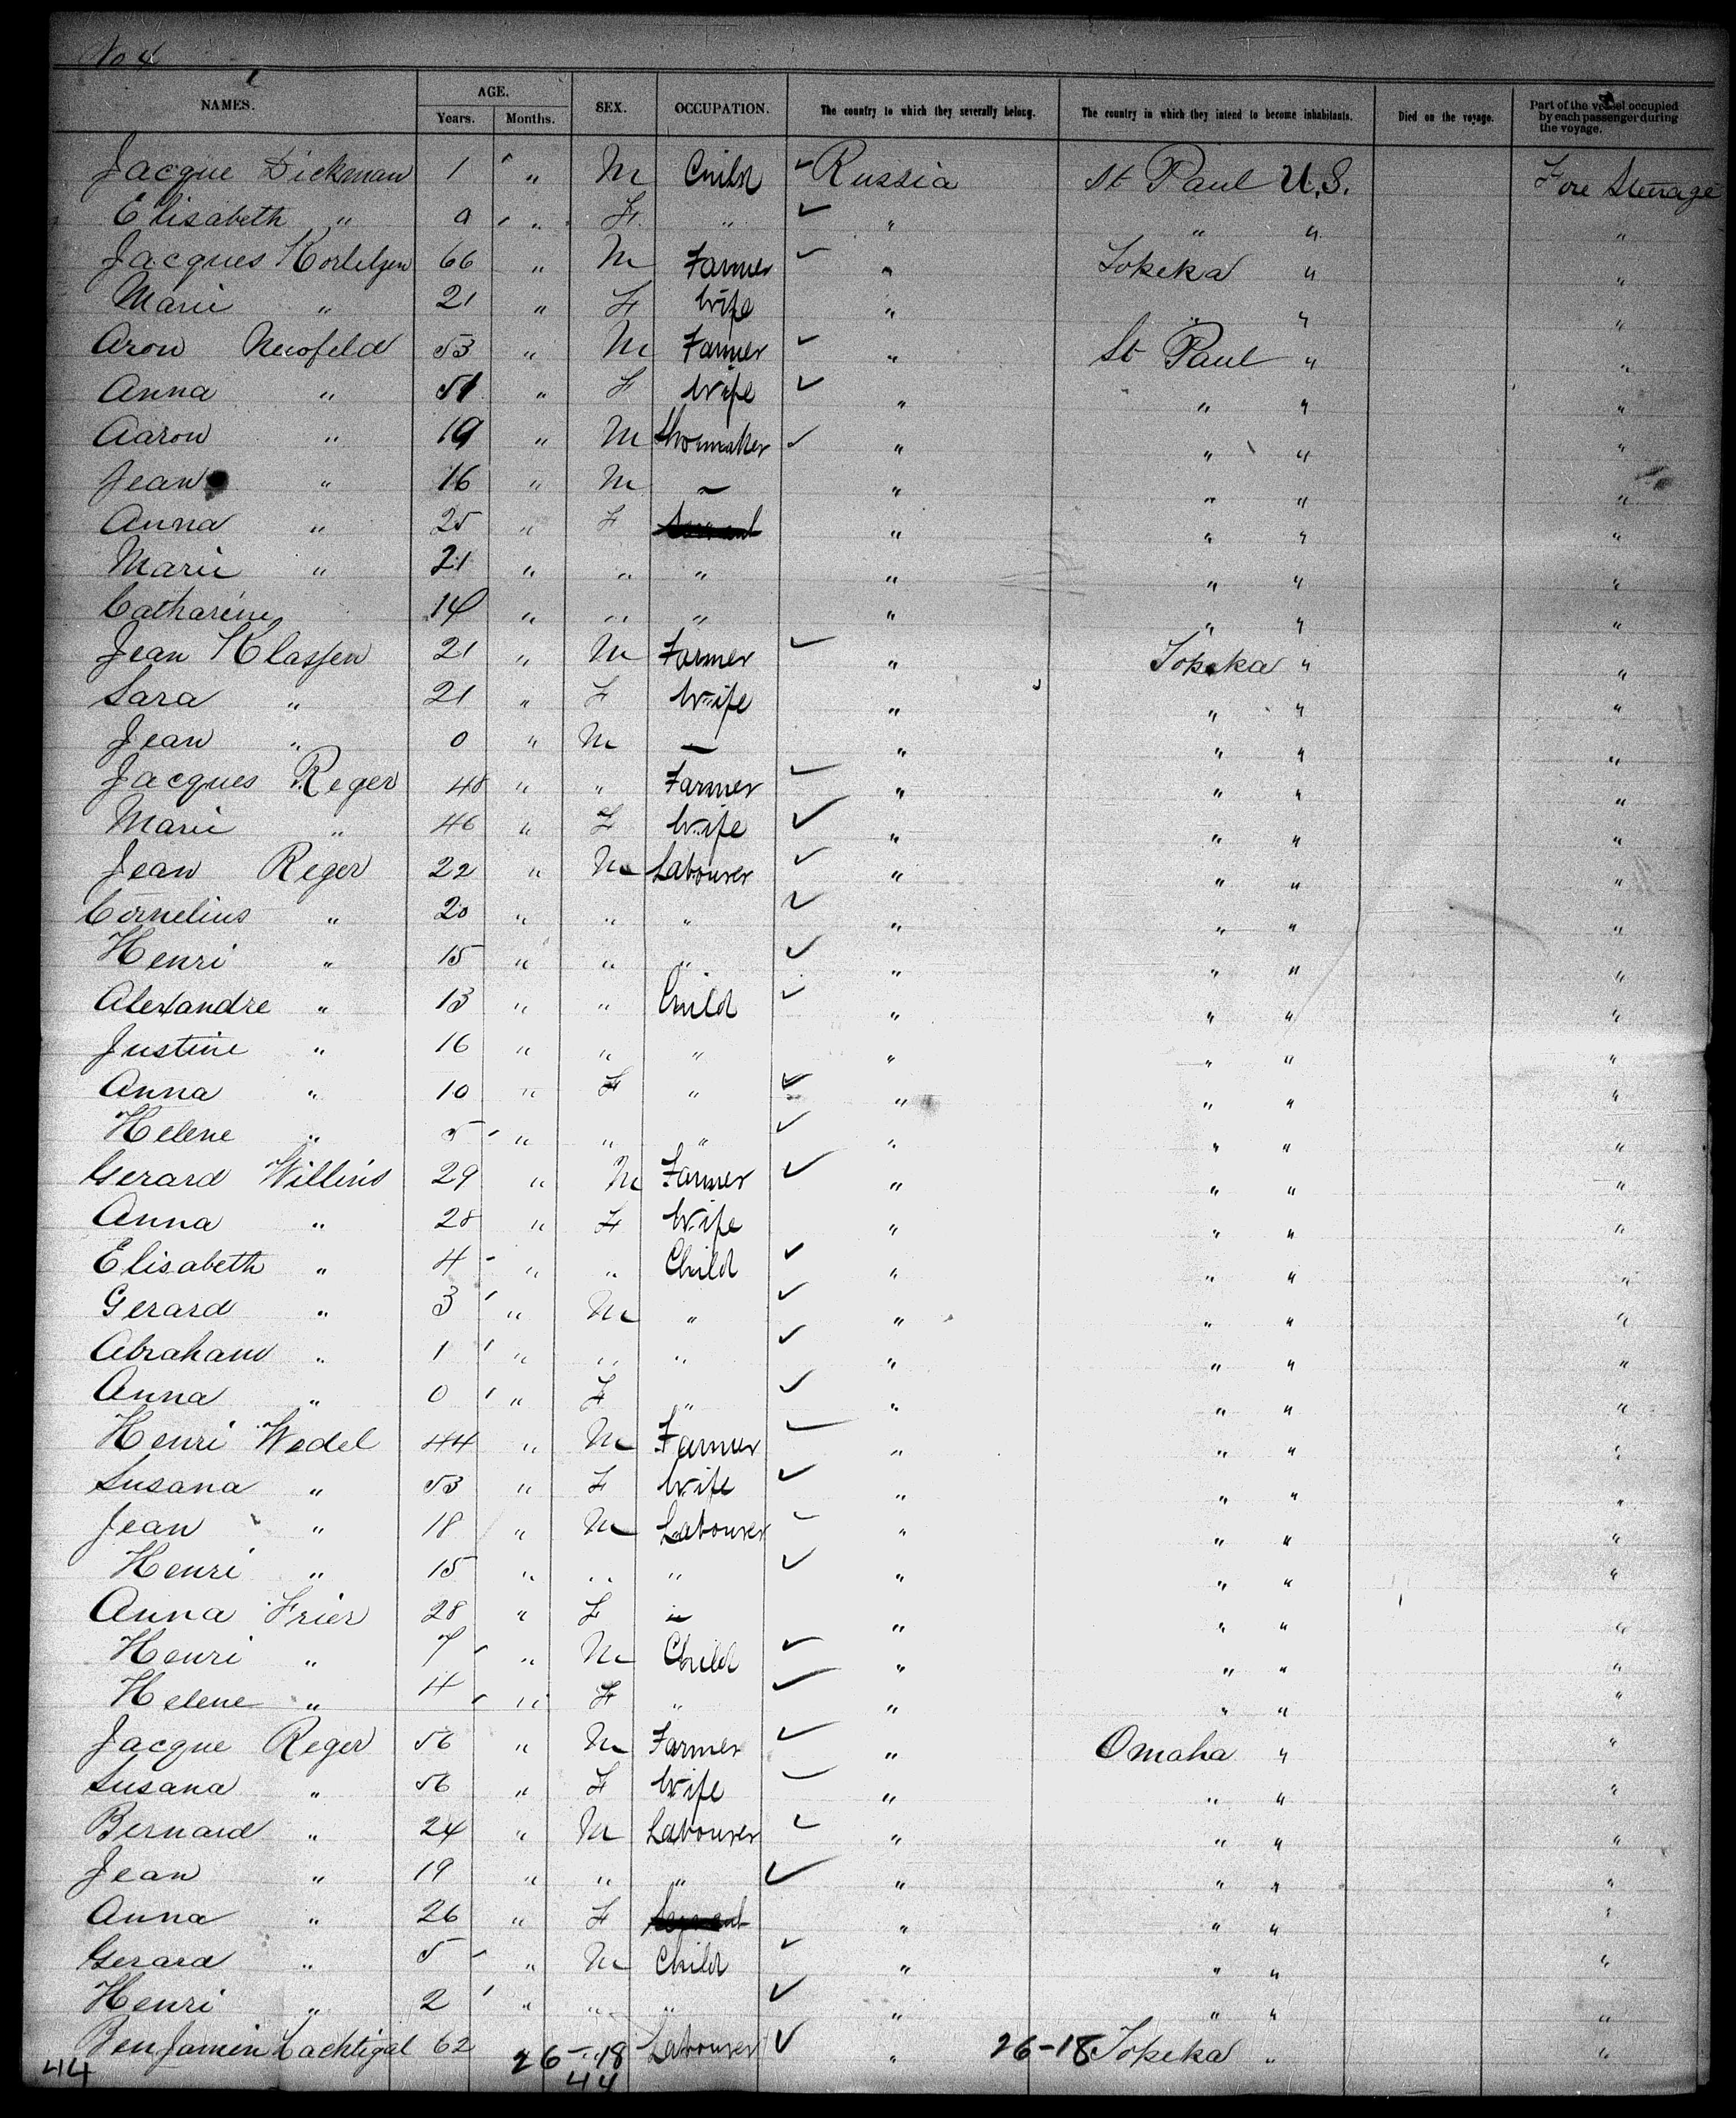 No 4
NAMES. AGE. Years. Months. SEX. OCCUPATION. The country to which they severally belong. The country in which they intend to become inhabitants. Died on the voyage. Part of the vessel occupied by each passenger during the voyage.
Jacque Dickman 1 " M Child Russia St Paul U.S. Fore Steerage
Elisabeth " 9 " F " " " " "
Jacques 66 " M Farmer " Topeka " "
Marie " 21 " F Wife " " " "
Aron Neufeld 53 " M Farmer " St Paul " "
Anna " 51 " F Wife " " " "
Aaron " 19 " M Shoemaker " " " "
Jean " 16 " M – " " " "
Anna " 25 " F Servant " " " "
Marie " 21 " " " " " " "
Catharine 14 " " " " " " "
Jean Klassen 21 " M Farmer " Topeka " "
Sara " 21 " F Wife " " " "
Jean " 0 " M – " " " "
Jacques Reger 48 " " Farmer " " " "
Marie " 46 " F Wife " " " "
Jean Reger 22 " M Labourer " " " "
Cornelius " 20 " " " " " " "
Henri " 15 " " " " " " "
Alexandre " 13 " " Child " " " "
Justine " 16 " " " " " " "
Anna " 10 " F " " " " "
Helene " 5 " " " " " " "
Gerard Willins 29 " M Farmer " " " "
Anna " 28 " F Wife " " " "
Elisabeth " 4 " " Child " " " "
Gerard " 3 " M " " " " "
Abraham " 1 " " " " " " "
Anna " 0 " F " " " " "
Henri Wedel 44 " M Farmer " " " "
Susana " 53 " F Wife " " " "
Jean " 18 " M Labourer " " " "
Henri " 15 " " " " " " "
Anna Frier 28 " F – " " " "
Henri " 7 " M Child " " " "
Helene " 4 " F " " " " "
Jacque Reger 56 " M Farmer " Omaha " "
Susana " 56 " F Wife " " " "
Bernard " 24 " M Labourer " " " "
Jean " 19 " " " " " " "
Anna " 26 " F Servant " " " "
Gerard " 5 " M Child " " " "
Henri " 2 " " " " " " "
Benjamin 62 26-18 Labourer " 26-18 Topeka " "
44 44